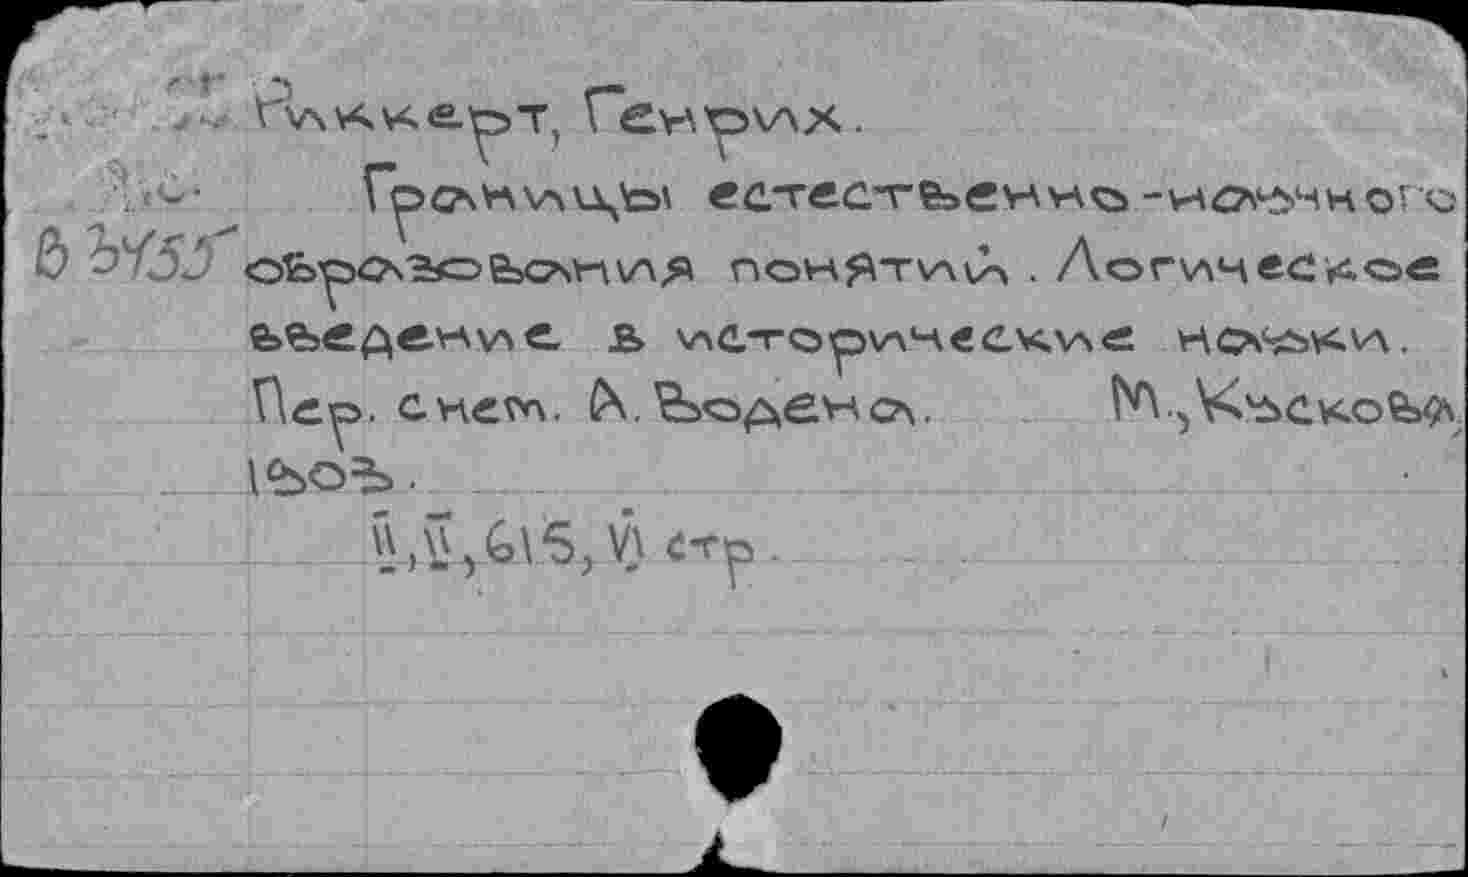 Риккерт, Генрих.
Границы естественно-научного
образования понятий. Логическое
введение в исторические науки.
Пер. с нем. А. Водена. М., Кускова,
1903.
II, II, 615, VI стр.